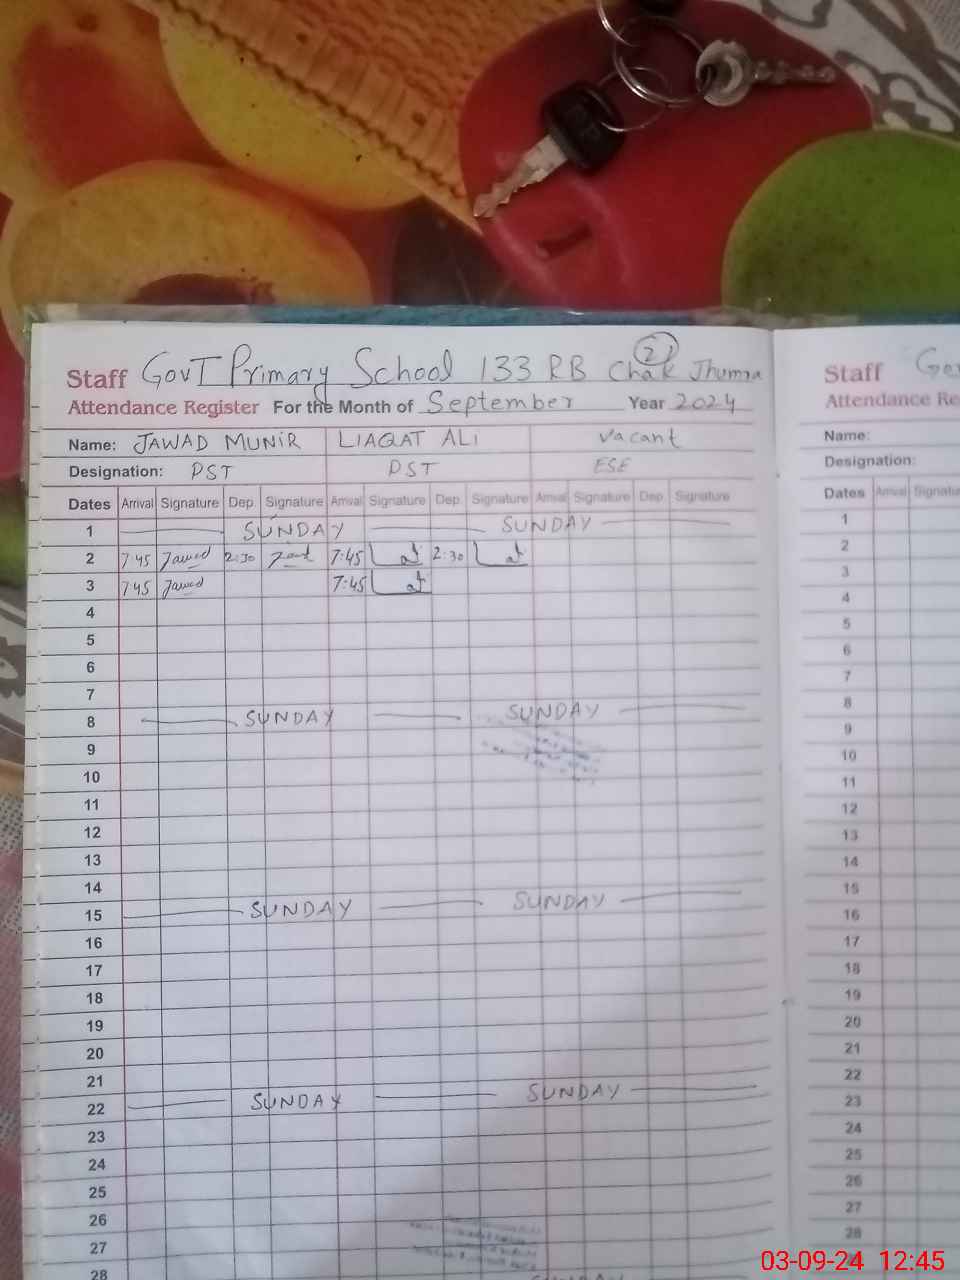 Staff GovT Primary School 133 RB Chak Jhumra
(2)
Attendance Register For the Month of September Year 2024
Name: JAWAD MUNIR LIAQAT ALI Vacant
Designation: PST PST ESE
Dates Arrival Signature Dep. Signature Arrival Signature Dep. Signature Arrival Signature Dep. Signature
1 SUNDAY SUNDAY
2 7:45 Jawad 2:30 7:45 2:30
3 7:45 Jawad 7:45
4
5
6
7
8 SUNDAY SUNDAY
9
10
11
12
13
14
15 SUNDAY SUNDAY
16
17
18
19
20
21
22 SUNDAY SUNDAY
23
24
25
26
27
28
Staff Gov
Attendance Re
Name:
Designation:
Dates Arrival Signatu
1
2
3
4
5
6
7
8
9
10
11
12
13
14
15
16
17
18
19
20
21
22
23
24
25
26
27
28
03-09-24 12:45